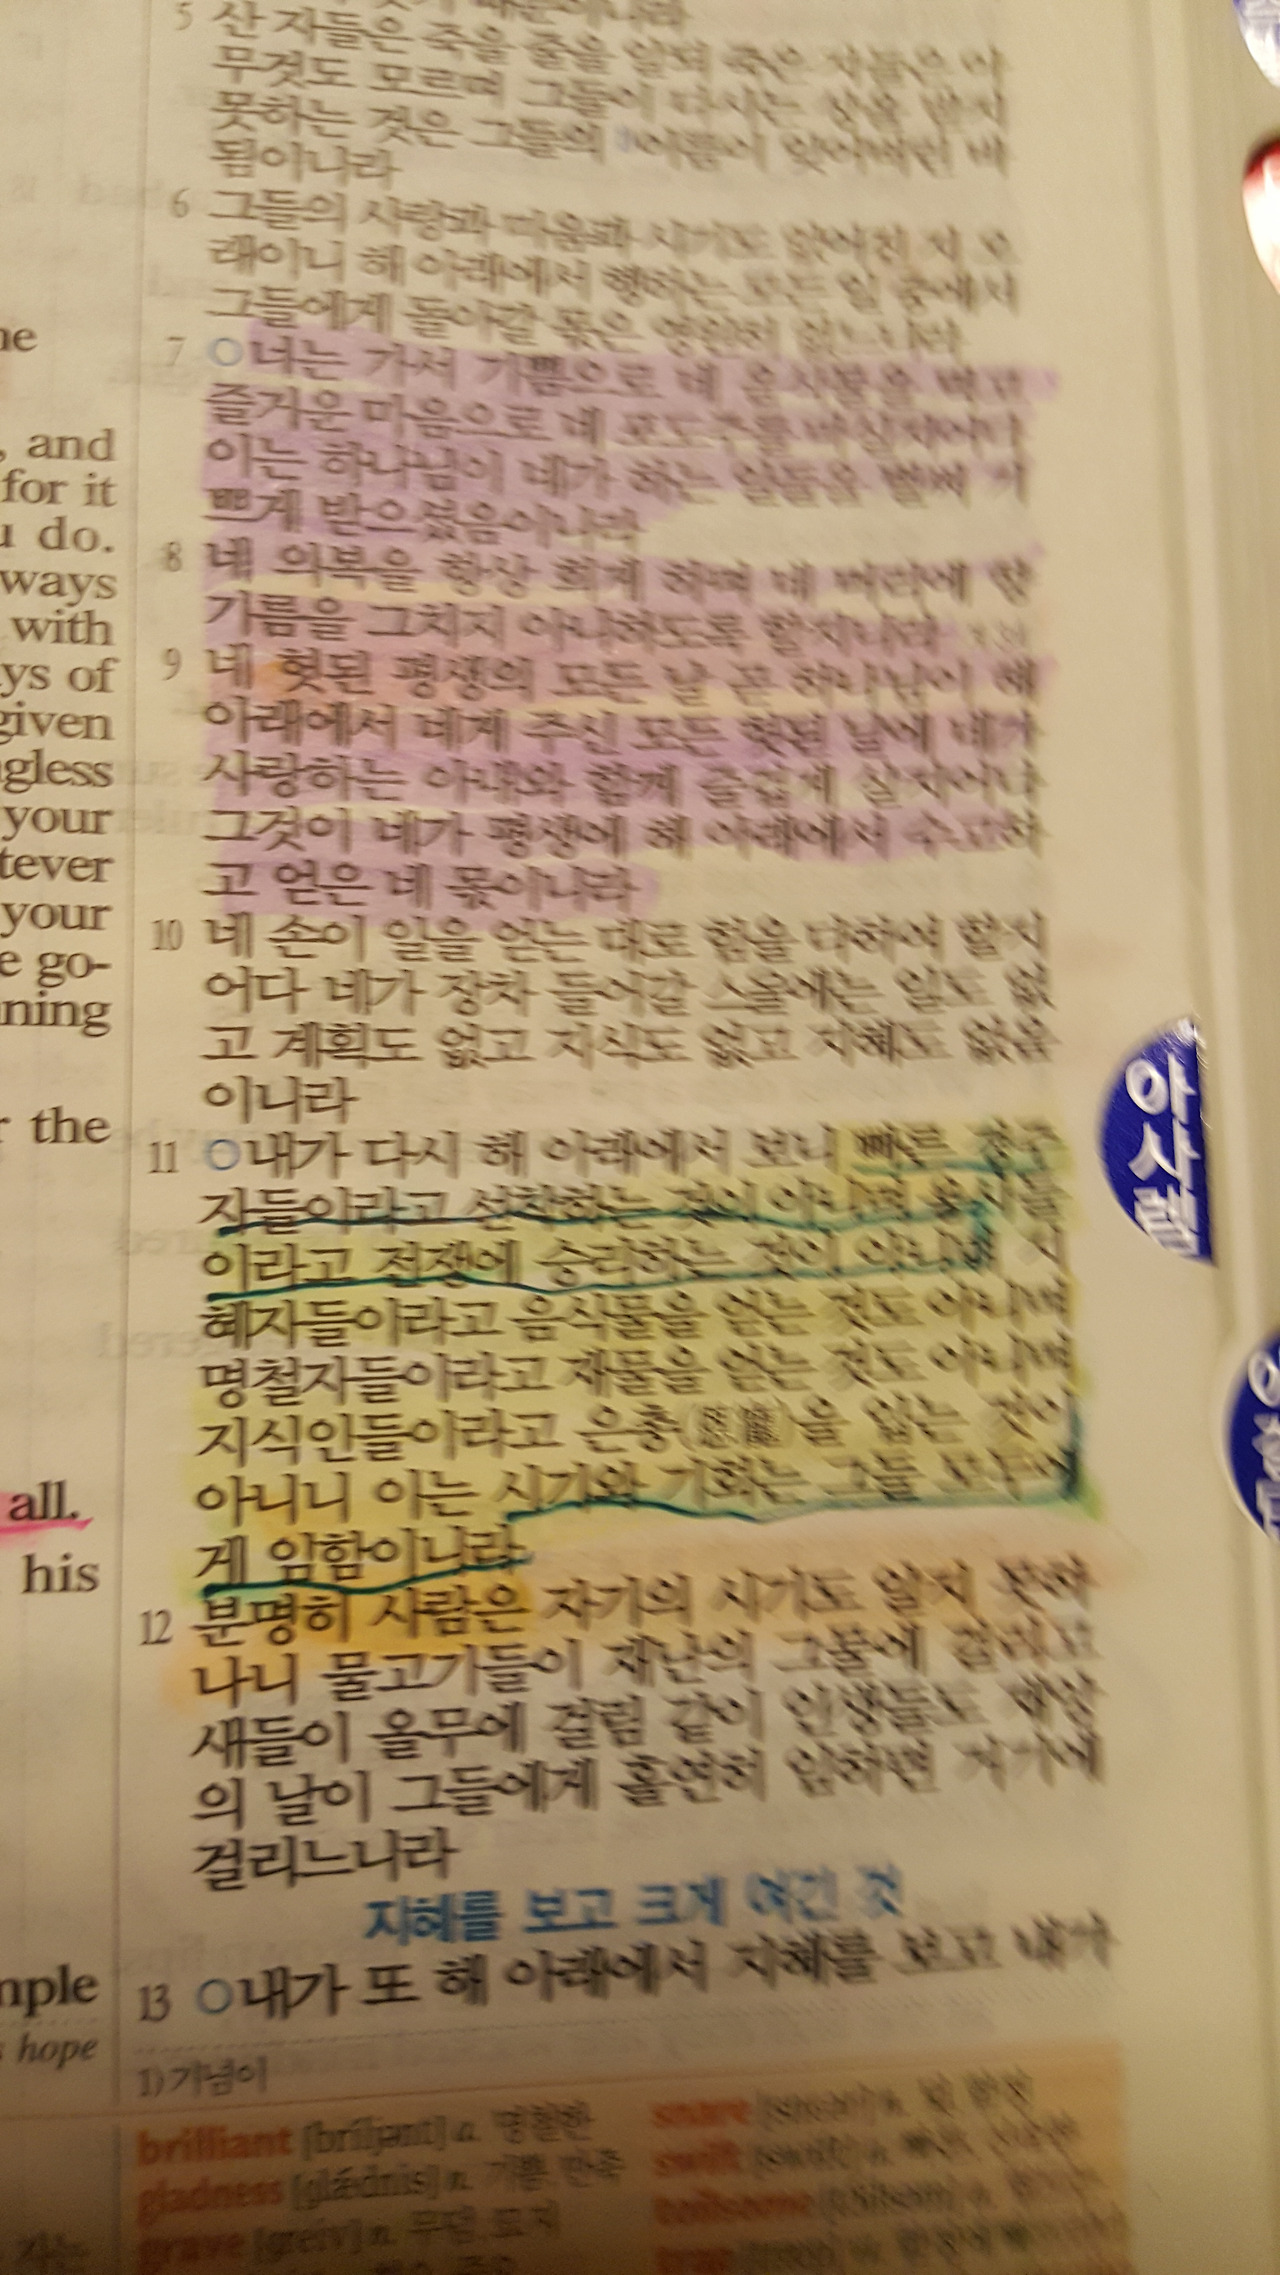 5 산 자들은 죽을 줄을 알되 죽은 자들은 아
무것도 모르며 그들이 다시는 상을 받지
못하는 것은 그들의 이름이 잊어버린 바
됨이니라
6 그들의 사랑과 미움과 시기도 없어진 지 오
래이니 해 아래에서 행하는 모든 일 중에서
그들에게 돌아갈 몫은 영원히 없느니라
7 ○너는 가서 기쁨으로 네 음식물을 먹고
즐거운 마음으로 네 포도주를 마실지어다
이는 하나님이 네가 하는 일들을 벌써 기
쁘게 받으셨음이니라
8 네 의복을 항상 희게 하며 네 머리에 향
기름을 그치지 아니하도록 할지니라
9 네 헛된 평생의 모든 날 곧 하나님이 해
아래에서 네게 주신 모든 헛된 날에 네가
사랑하는 아내와 함께 즐겁게 살지어다
그것이 네가 평생에 해 아래에서 수고하
고 얻은 네 몫이니라
10 네 손이 일을 얻는 대로 힘을 다하여 할지
어다 네가 장차 들어갈 스올에는 일도 없
고 계획도 없고 지식도 없고 지혜도 없음
이니라
11 ○내가 다시 해 아래에서 보니 빠른 경주
자들이라고 선착하는 것이 아니며 용사들
이라고 전쟁에 승리하는 것이 아니며 지
혜자들이라고 음식물을 얻는 것도 아니며
명철자들이라고 재물을 얻는 것도 아니며
지식인들이라고 은총(恩寵)을 입는 것이
아니니 이는 시기와 기회는 그들 모두에
게 임함이니라
12 분명히 사람은 자기의 시기도 알지 못하
나니 물고기들이 재난의 그물에 걸리고
새들이 올무에 걸림 같이 인생들도 재앙
의 날이 그들에게 홀연히 임하면 거기에
걸리느니라
지혜를 보고 크게 여긴 것
13 ○내가 또 해 아래에서 지혜를 보고 내가
1) 기념이
brilliant [bríljənt] a. 명철한
gladness [glǽdnis] n. 기쁨, 만족
grave [greiv] n. 무덤, 묘지
snare
swift
toilsome
trap
, and
for it
do.
ways
with
of
given
your
your
go-
the
all.
his
hope
아
사
렘